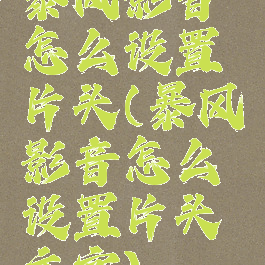 暴风影音
怎么设置
片头(暴风
影音怎么
设置片头